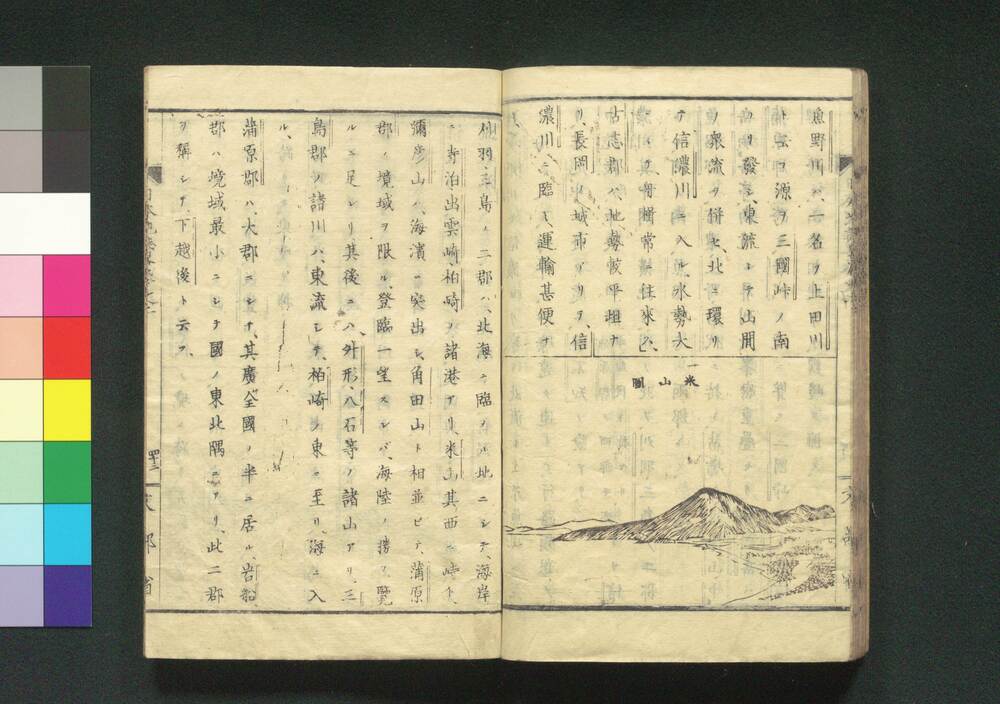 魚野川ハ、一名ヲ上田川
ト云フ、源ヲ三國峠ノ南
ヨリ發シ、東流シテ山間
ノ衆流ヲ併セ、北ニ環リ
テ信濃川ニ入ル、水勢大
舟楫常ニ往來ス、
古志郡ハ、地勢較平坦ナ
リ、長岡ノ城市アリテ、信
濃川ニ臨ミ、運輸甚便ナ
米山圖
刈羽、三島ノ二郡ハ、北海ニ臨ノ地ニシテ、海岸
ニ寺泊出雲崎、柏崎ノ諸港アリ、米山其西ニ峙ち、
彌彦山ハ、海濱ニ突出シ、角田山ト相並ビテ、蒲原
郡ノ境域ヲ限ル、登臨一望スレバ、海陸ノ勝ヲ覽
ルニ足レリ、其後ニハ、外形、八石等ノ諸山アリ、三
島郡ノ諸川ハ、東流シテ、柏崎ノ東ニ至リ、海ニ入
ル、
蒲原郡ハ、大郡ニシテ、其廣全國ノ半ニ居ル、岩船
郡ハ境域最小ニシテ國ノ東北隅ニアリ、此二郡
ヲ稱シテ下越後ト云フ、
文部省